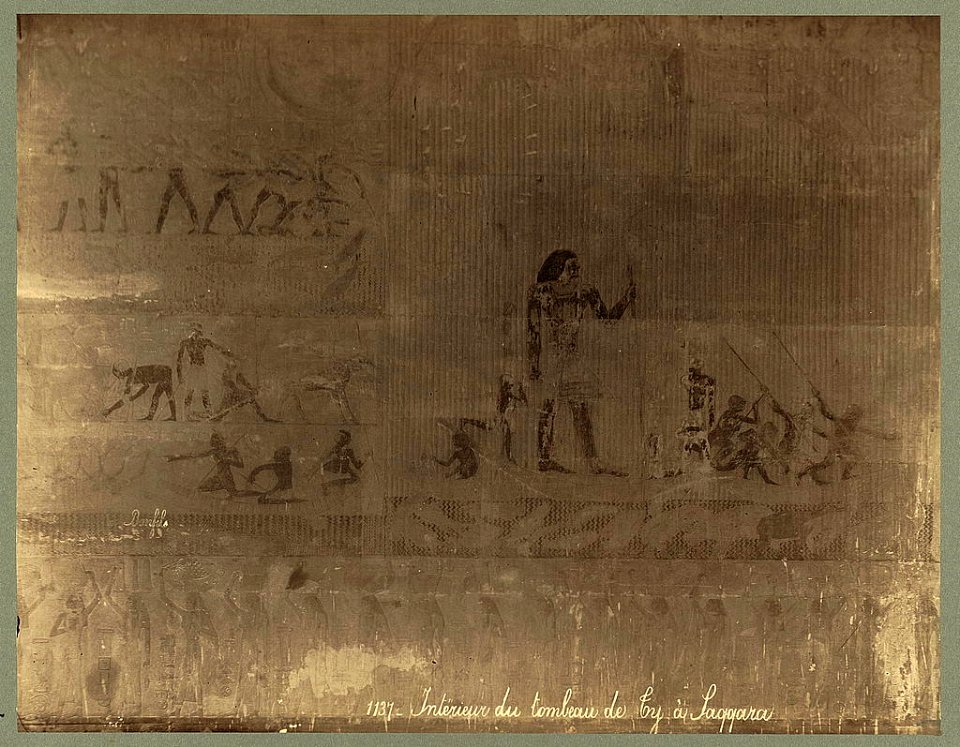 Bonfils
1137_ Intérieur du tombeau de Ty à Saggara